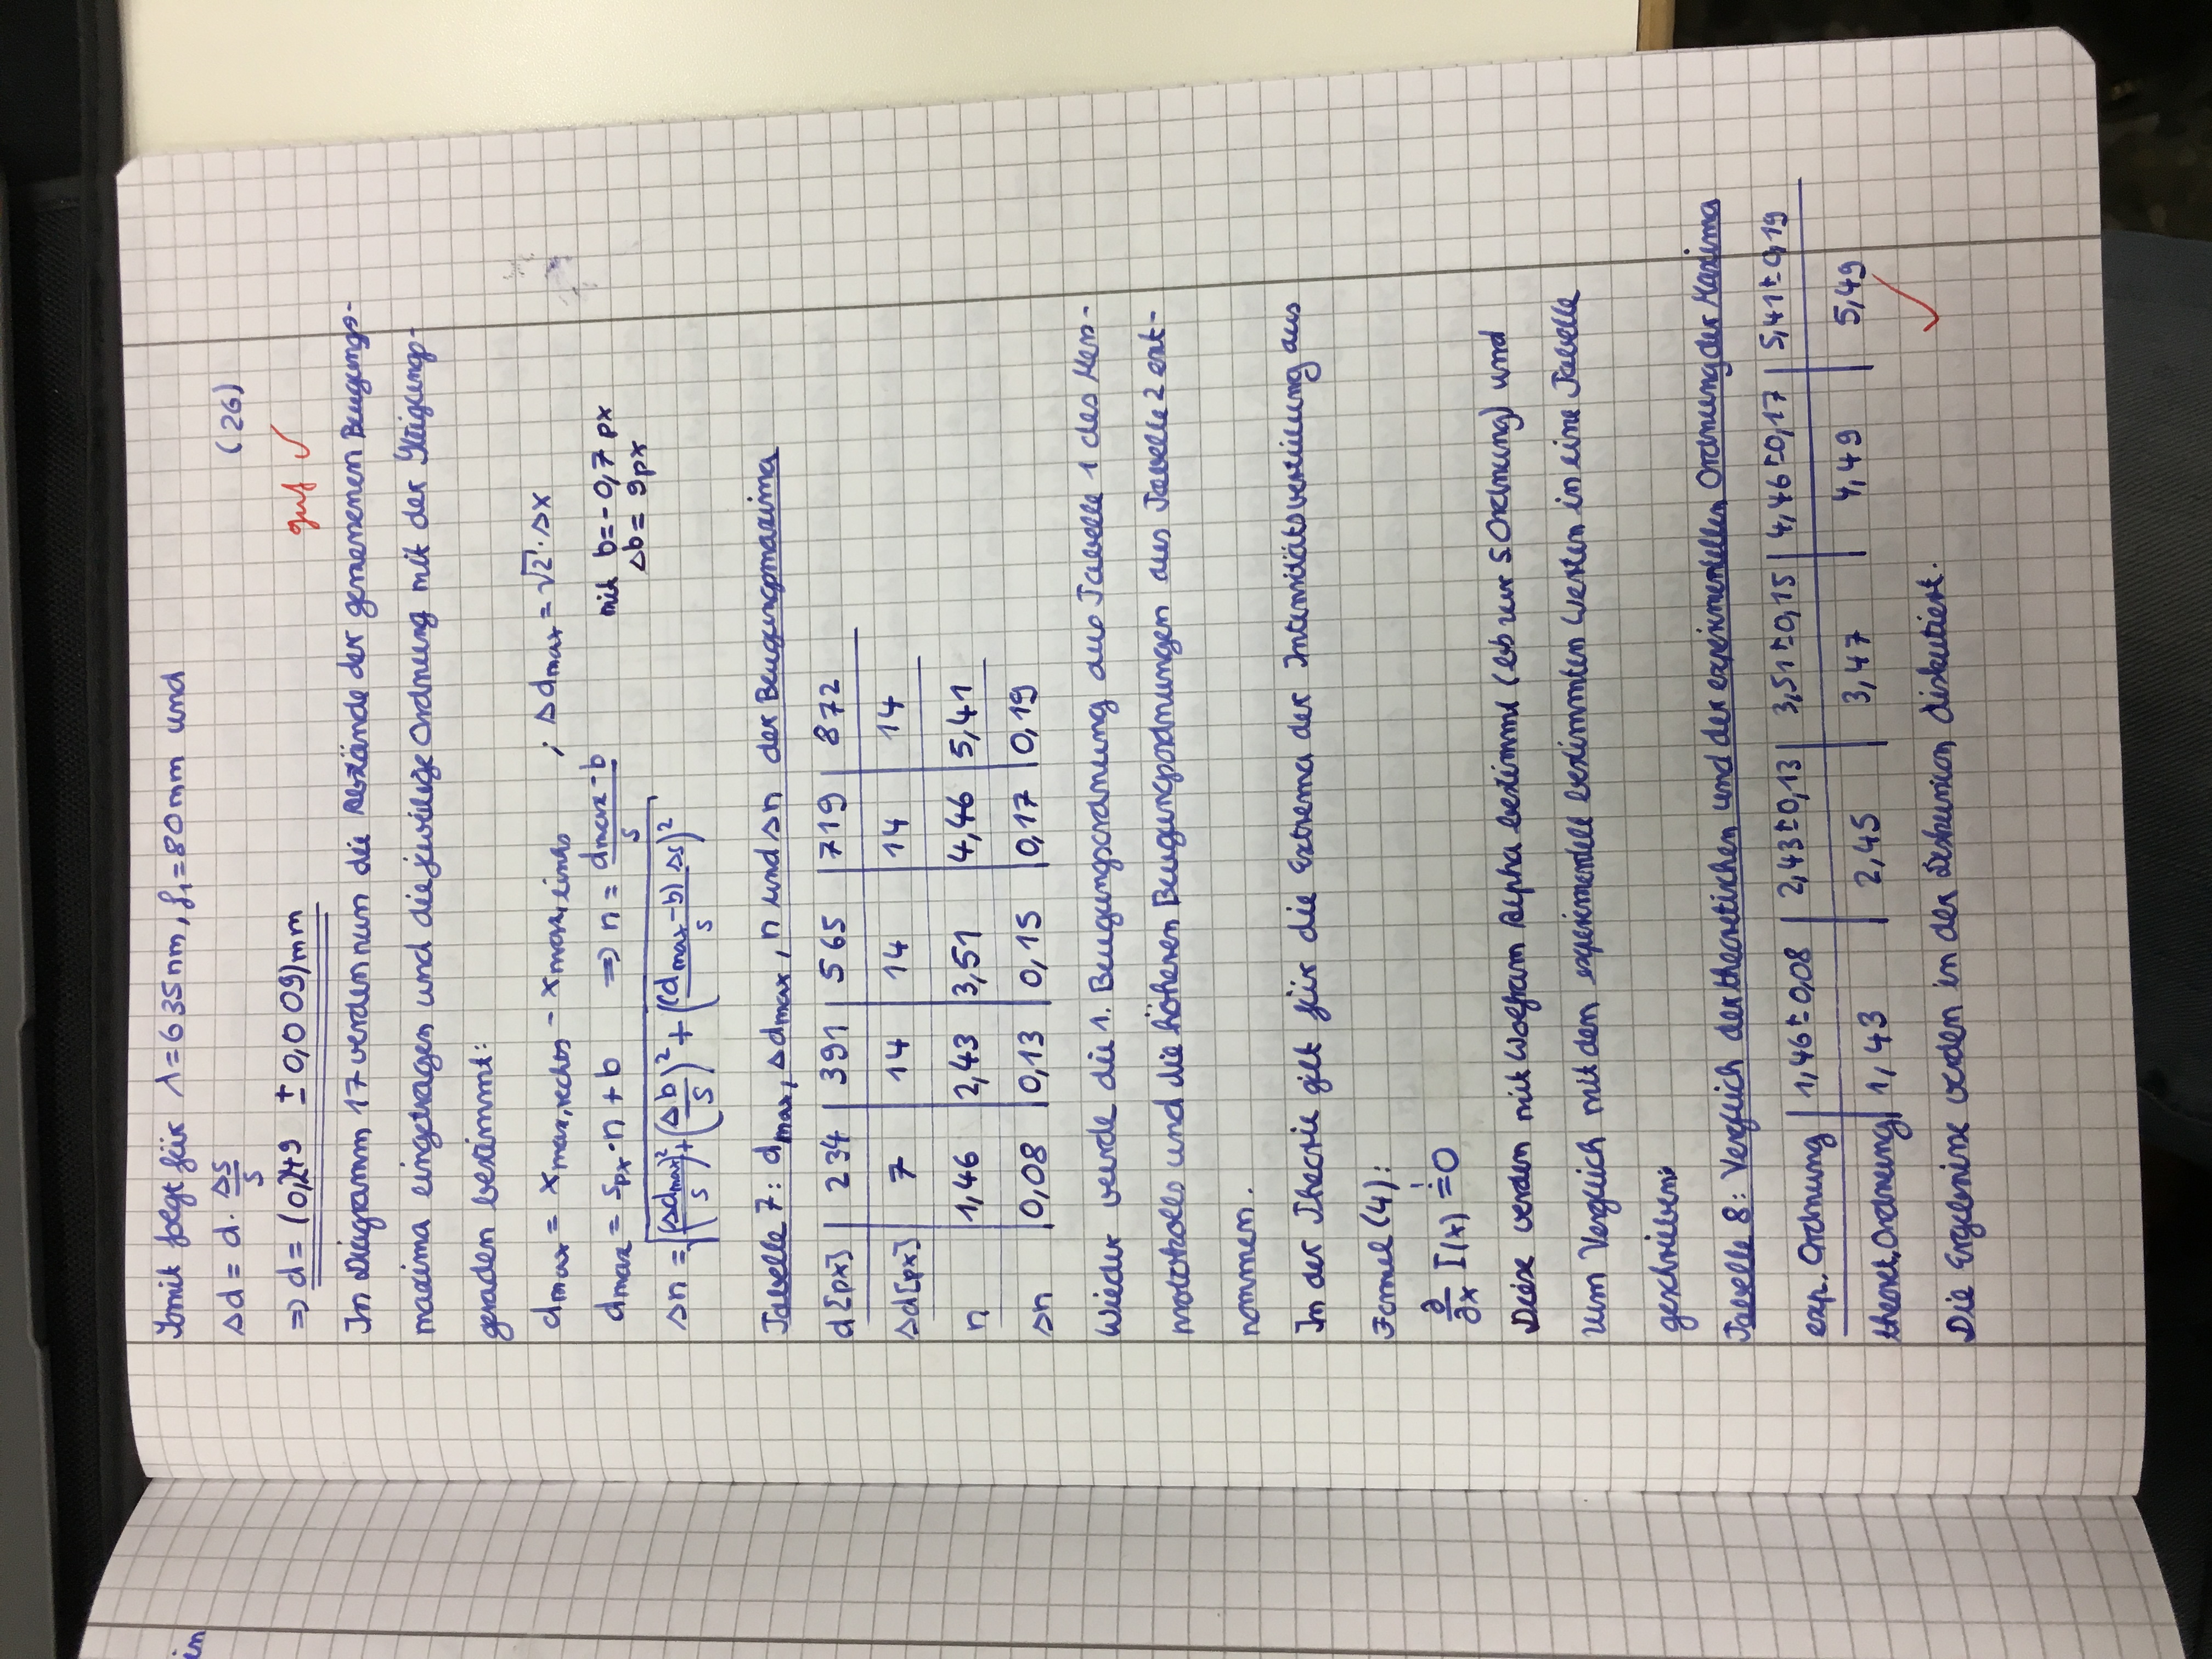 in
Somit folgt für λ = 635 nm, f₁ = 80 mm und
Δd = d · Δs/s (26)
⇒ d = (0,249 ± 0,009) mm
gut ✓
In Diagramm 17 werden nun die Abstände der gemessenen Beugungs-
maxima eingetragen und die jeweilige Ordnung mit der Steigungs-
geraden bestimmt:
d_max = x_max,rechts - x_max,links ; Δd_max = √2 · Δx
d_max = s_px · n + b ⇒ n = (d_max - b)/s mit b = -0,7 px
Δb = 9 px
Δn = √((Δd_max/s)² + (Δb/s)² + ((d_max - b) Δs/s)²)
Tabelle 7: d_max, Δd_max, n und Δn der Beugungsmaxima
d [px] | 234 | 391 | 565 | 719 | 872
Δd [px] | 7 | 14 | 14 | 14 | 14
n | 1,46 | 2,43 | 3,51 | 4,46 | 5,41
Δn | 0,08 | 0,13 | 0,15 | 0,17 | 0,19
Wieder wurde die 1. Beugungsordnung aus Tabelle 1 des Mess-
protokolls und die höheren Beugungsordnungen aus Tabelle 2 ent-
nommen.
In der Theorie gilt für die Extrema der Intensitätsverteilung aus
Formel (4):
∂/∂x I(x) =! 0
Diese werden mit Wolfram Alpha bestimmt (bis zur 5. Ordnung) und
zum Vergleich mit den experimentell bestimmten Werten in eine Tabelle
geschrieben:
Tabelle 8: Vergleich der theoretischen und der experimentellen Ordnung der Maxima
exp. Ordnung | 1,46 ± 0,08 | 2,43 ± 0,13 | 3,51 ± 0,15 | 4,46 ± 0,17 | 5,41 ± 0,19
theoret. Ordnung | 1,43 | 2,45 | 3,47 | 4,49 | 5,49
✓
Die Ergebnisse werden in der Diskussion diskutiert.